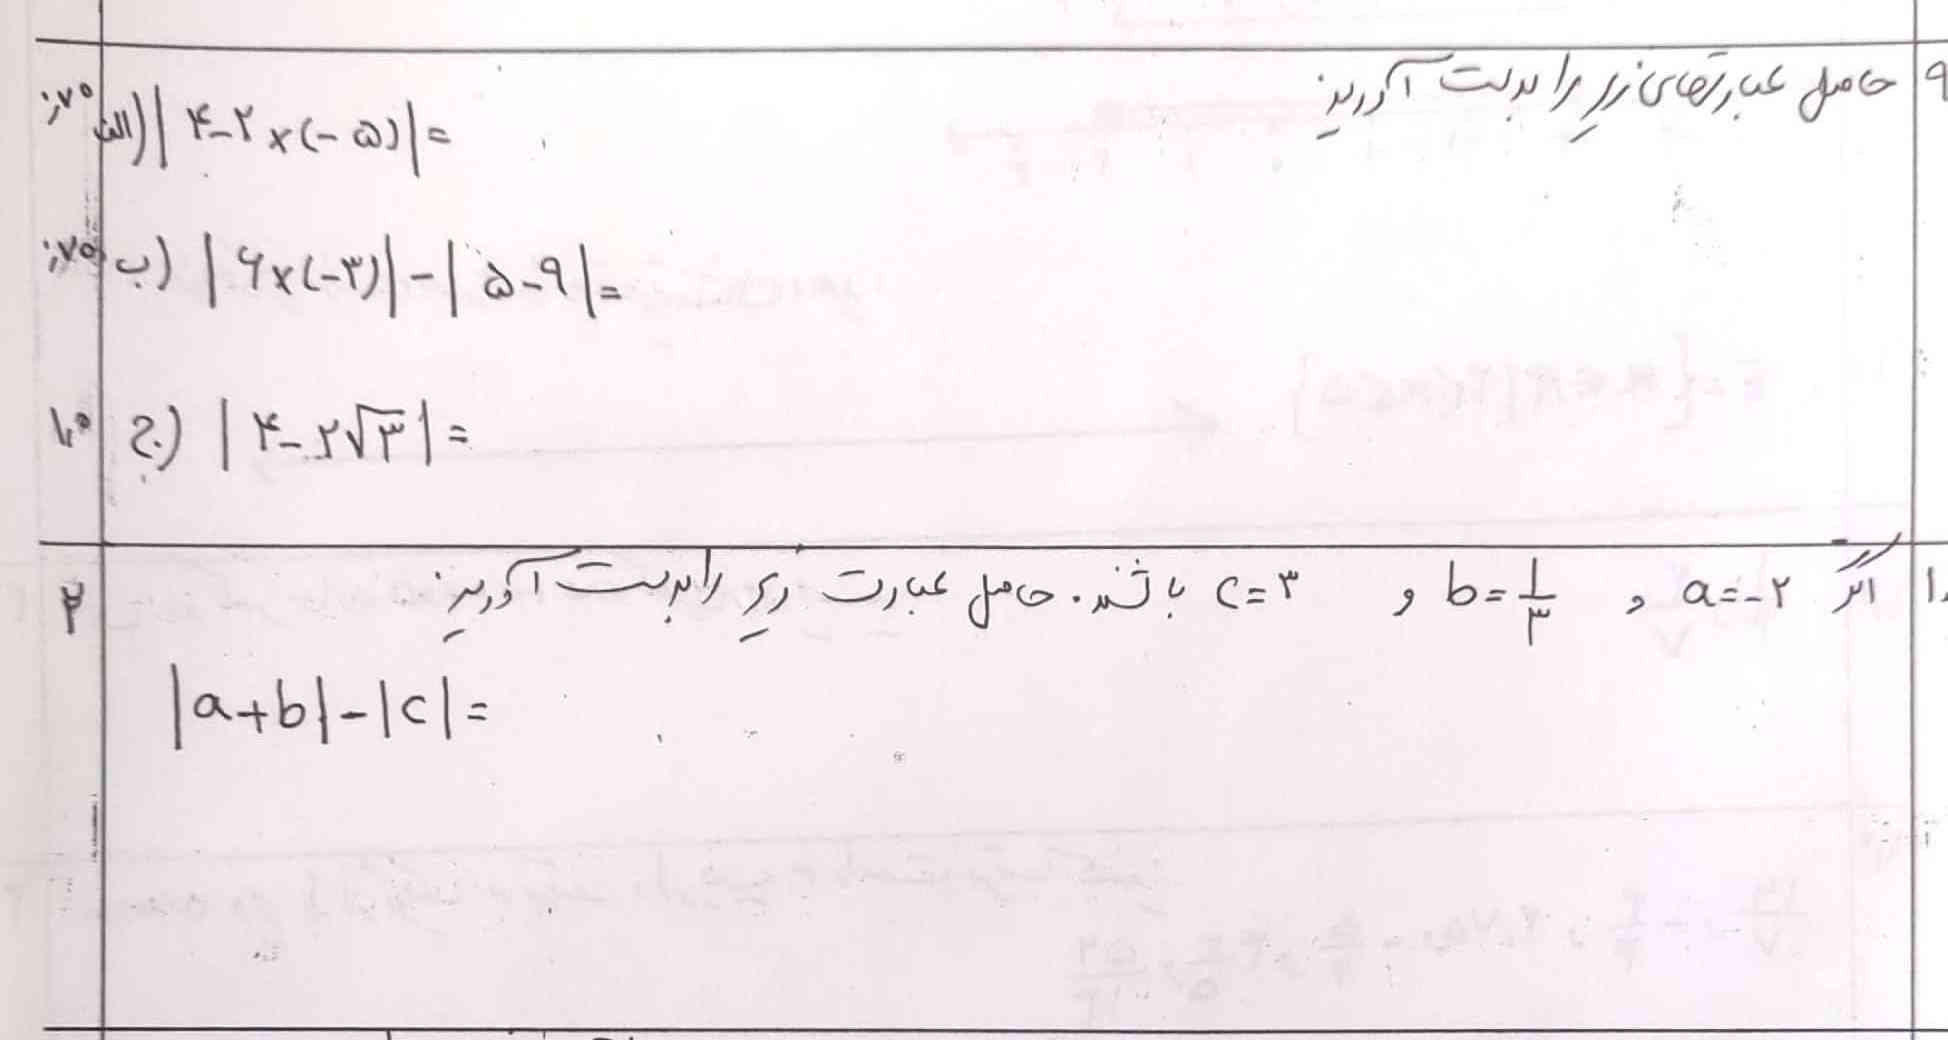 ۹ حاصل عبارتهای زیر را بدست آورید
الف) |۴-۲×(-۵)|= ۰٫۷۵
ب) |۶×(-۳)|-|۵-۹|= ۰٫۷۵
ج) |۴-۲√۳|= ۱٫۵
۱۰ اگر a=-۲ و b=۱/۳ و c=۳ باشند. حاصل عبارت زیر را بدست آورید ۲
|a+b|-|c|=